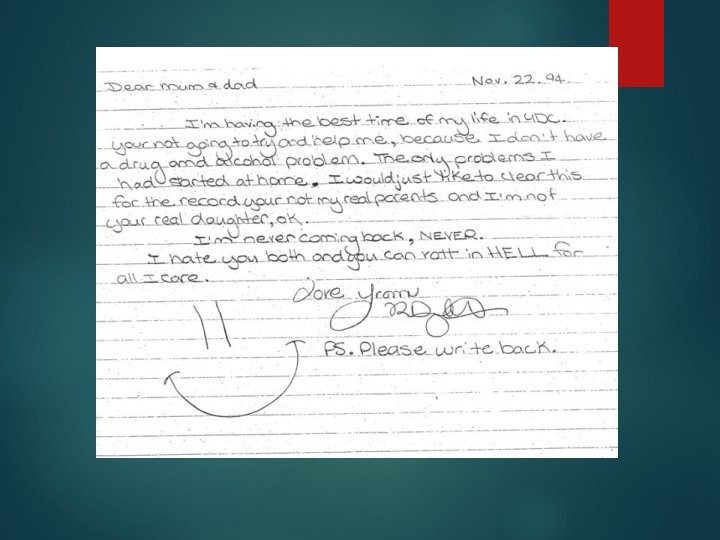 Dear mum & dad Nov. 22. 94
I'm having the best time of my life in YDC.
your not going to try and help me, because I don't have
a drug and alcohol problem. The only problems I
had started at home. I would just like to clear this
for the record your not my real parents and I'm not
your real daughter, ok.
I'm never coming back, NEVER.
I hate you both and you can rott in HELL for
all I care.
Love
PS. Please write back.